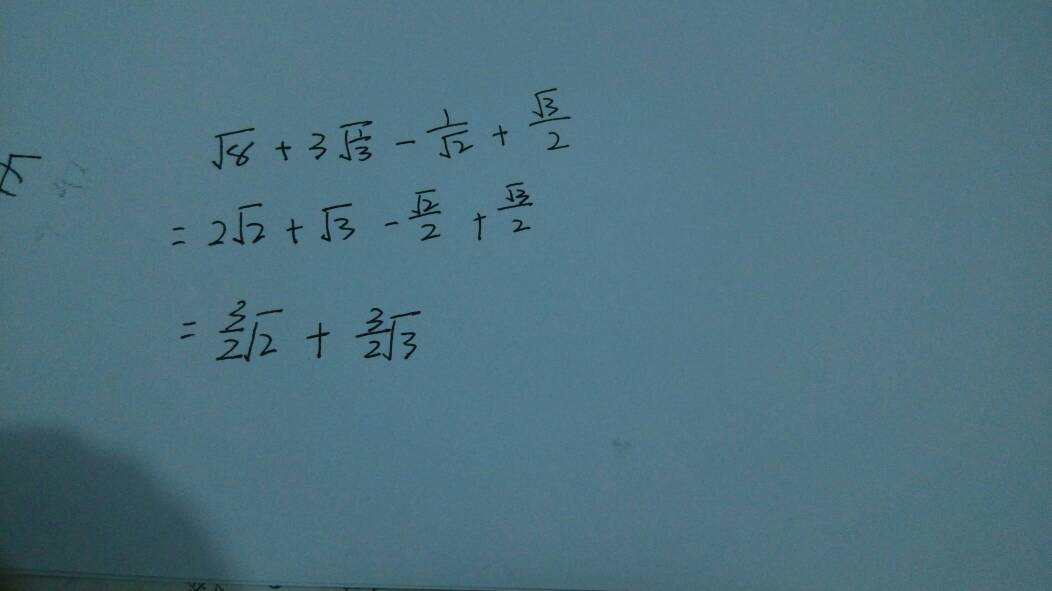 √8 + 3√(1/3) - 1/√2 + √3/2
= 2√2 + √3 - √2/2 + √3/2
= 3/2√2 + 3/2√3